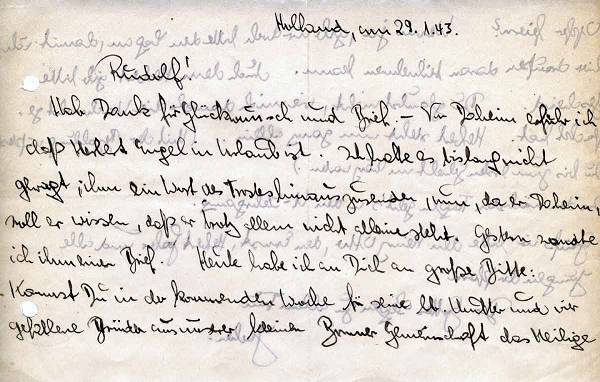 Holland, am 29.1.43.
Rudolf!
Hab Dank für Glückwunsch und Brief. – Von Daheim erfuhr ich
daß Herbert Engel in Urlaub ist. Ich hatte es bislang nicht
gewagt, ihm ein Wort des Trostes hinauszusenden, nun, da er Daheim,
soll er wissen, daß er trotz allem nicht alleine steht. Gestern sandte
ich ihm einen Brief. Heute habe ich an Dich eine große Bitte:
Kannst Du in der kommenden Woche für seine Mutter und vier
gefallene Brüder aus unserer kleinen Bonner Gemeinschaft das Heilige